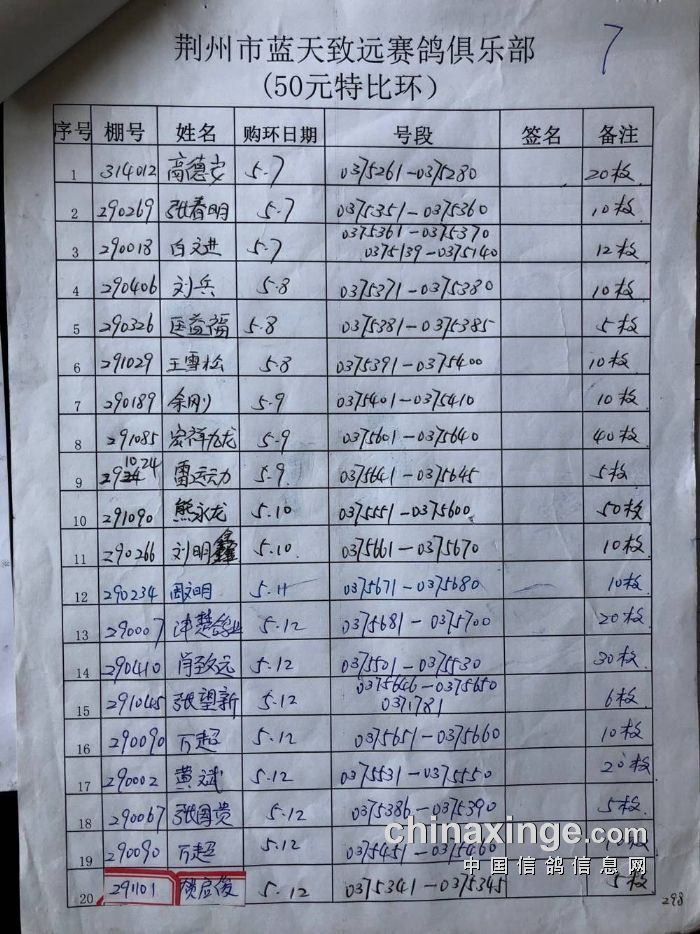 荆州市蓝天致远赛鸽俱乐部
7
(50元特比环)
序号 棚号 姓名 购环日期 号段 签名 备注
1 314012 高德安 5.7 0375261-0375280 20枚
2 290269 张春明 5.7 0375351-0375360 10枚
3 290018 白文进 5.7 0375361-0375370 12枚
0375139-0375140
4 290406 刘兵 5.8 0375371-0375380 10枚
5 290326 匡益福 5.8 0375381-0375385 5枚
6 291029 王雪松 5.8 0375391-0375400 10枚
7 290189 余刚 5.9 0375401-0375410 10枚
8 291085 宏祥九龙 5.9 0375601-0375640 40枚
9 291024 雷运动力 5.9. 0375641-0375645 5枚
10 291090 熊永龙 5.10 0375551-0375600 50枚
11 290266 刘明鑫 5.10. 0375661-0375670 10枚
12 290234 周文明 5.11 0375671-0375680 10枚
13 290007 津楚鸽业 5.12 0375681-0375700 20枚
14 290410 肖致远 5.12 0375501-0375530 30枚
15 291045 张望新 5.12 0375646-0375650 6枚
0371781
16 290090 万超 5.12 0375651-0375660 10枚
17 290002 黄斌 5.12 0375531-0375550 20枚
18 290067 张国贵 5.12 0375386-0375390 5枚
19 290090 万超 5.12 0375451-0375460 10枚
20 291101 5.12 0375341-0375345 5枚
298
chinaxinge.com
中国信鸽信息网